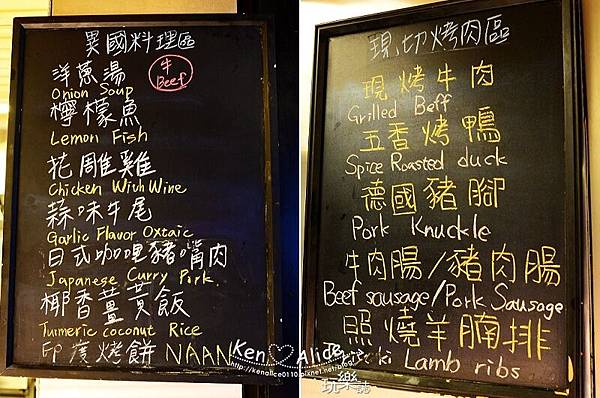 異國料理區
牛
Beef
洋蔥湯
Onion Soup
檸檬魚
Lemon Fish
花雕雞
Chicken With Wine
蒜味牛尾
Garlic Flavor Oxtaic
日式咖哩豬嘴肉
Japanese Curry Pork
椰香薑黃飯
Tumeric coconut Rice
印度烤餅 NAAN
現切烤肉區
現烤牛肉
Grilled Beff
五香烤鴨
Spice Roasted duck
德國豬腳
Pork Knuckle
牛肉腸/豬肉腸
Beef sausage/Pork Sausage
照燒羊腩排
Lamb ribs
Ken♡Alice
http://kenalice0110.pixnet.net/blog
玩樂誌